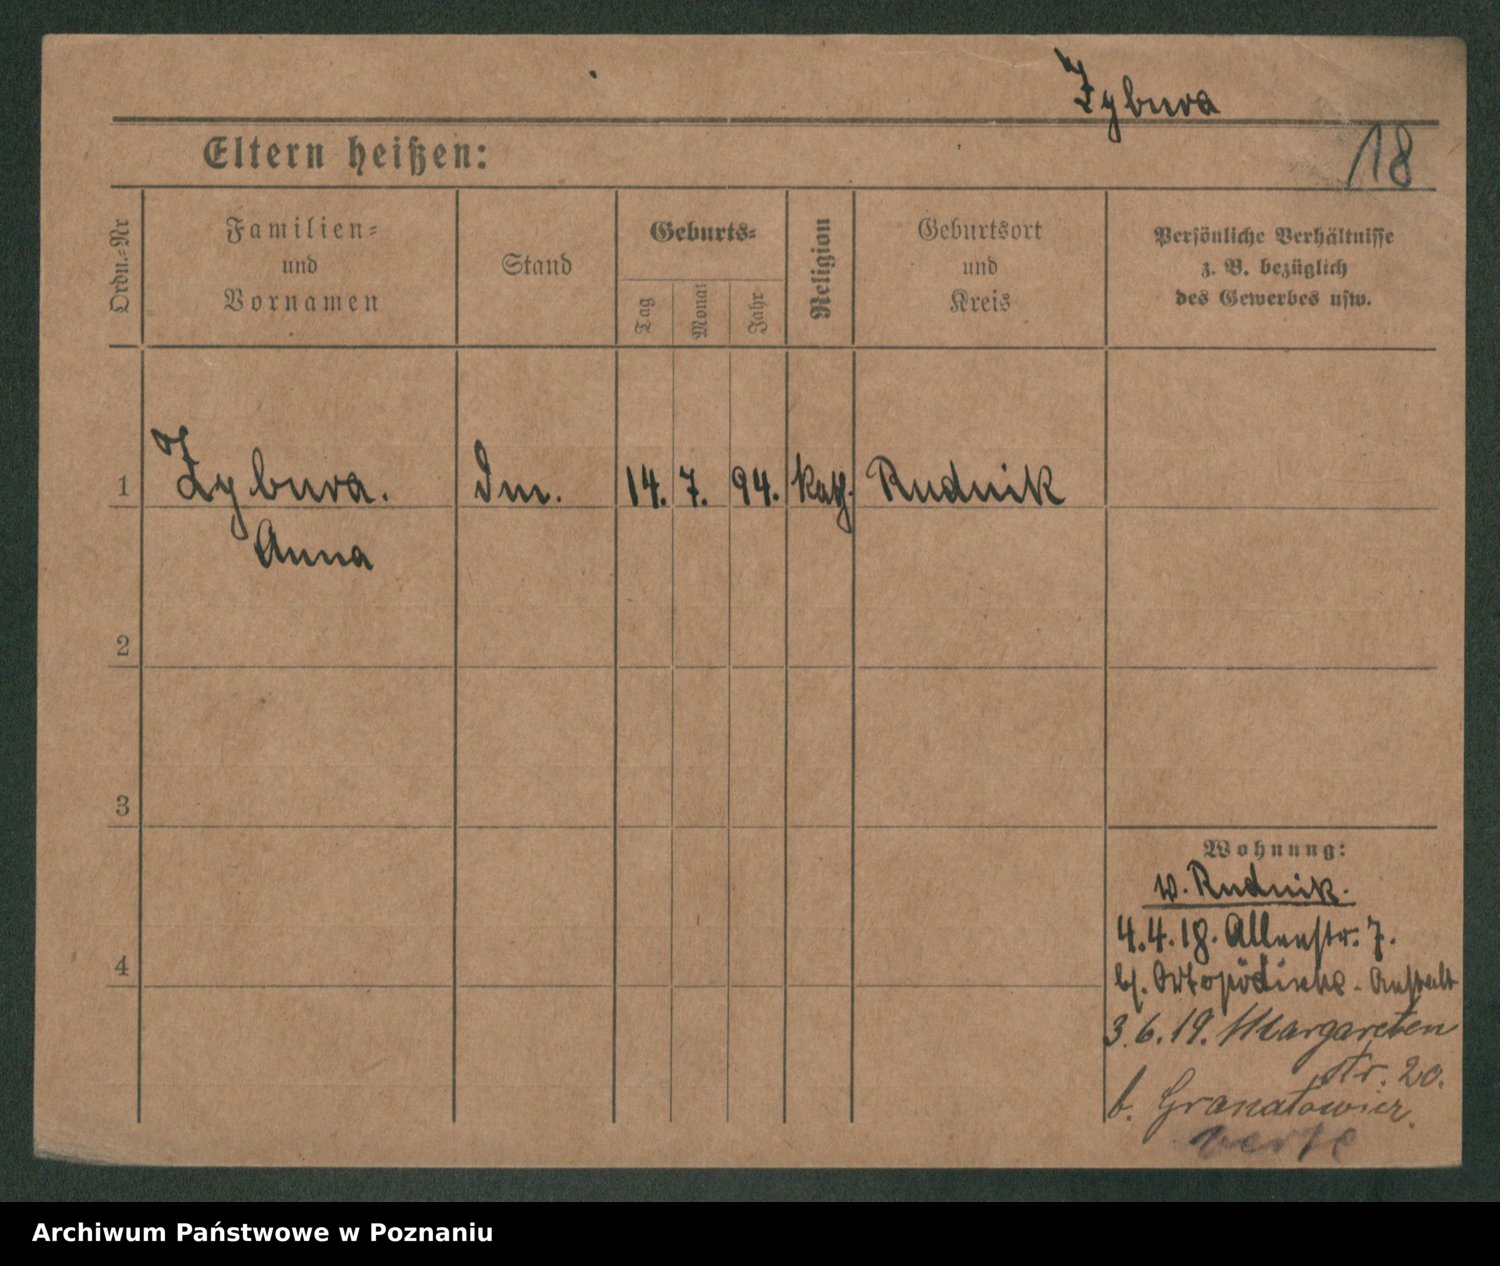 Zybura
18
Eltern heißen:
Ordn.-Nr
Familien-
und
Vornamen
Stand
Geburts-
Tag
Monat
Jahr
Religion
Geburtsort
und
Kreis
Persönliche Verhältnisse
z. B. bezüglich
des Gewerbes usw.
1
Zybura.
14. 7. 94. kath. Rudnik
Anna
2
3
4
Wohnung:
w. Rudnik.
4.4.18.
Anstalt
3.6.19. Margareten
str. 20.
b. Granatowicz.
verte
Archiwum Państwowe w Poznaniu